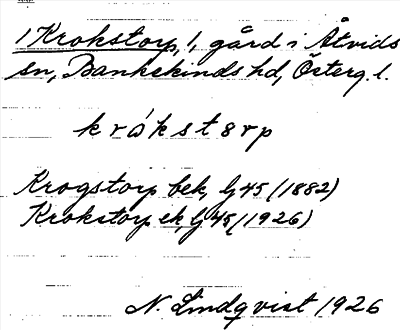 1 Krokstorp, 1, gård i Åtvids
sn, Bankekinds hd, Österg. l.
krókstɘrp
Krogstorp bek, Lj 45 (1882)
Krokstorp ek, Lj 45 (1926)
N. Lindqvist 1926